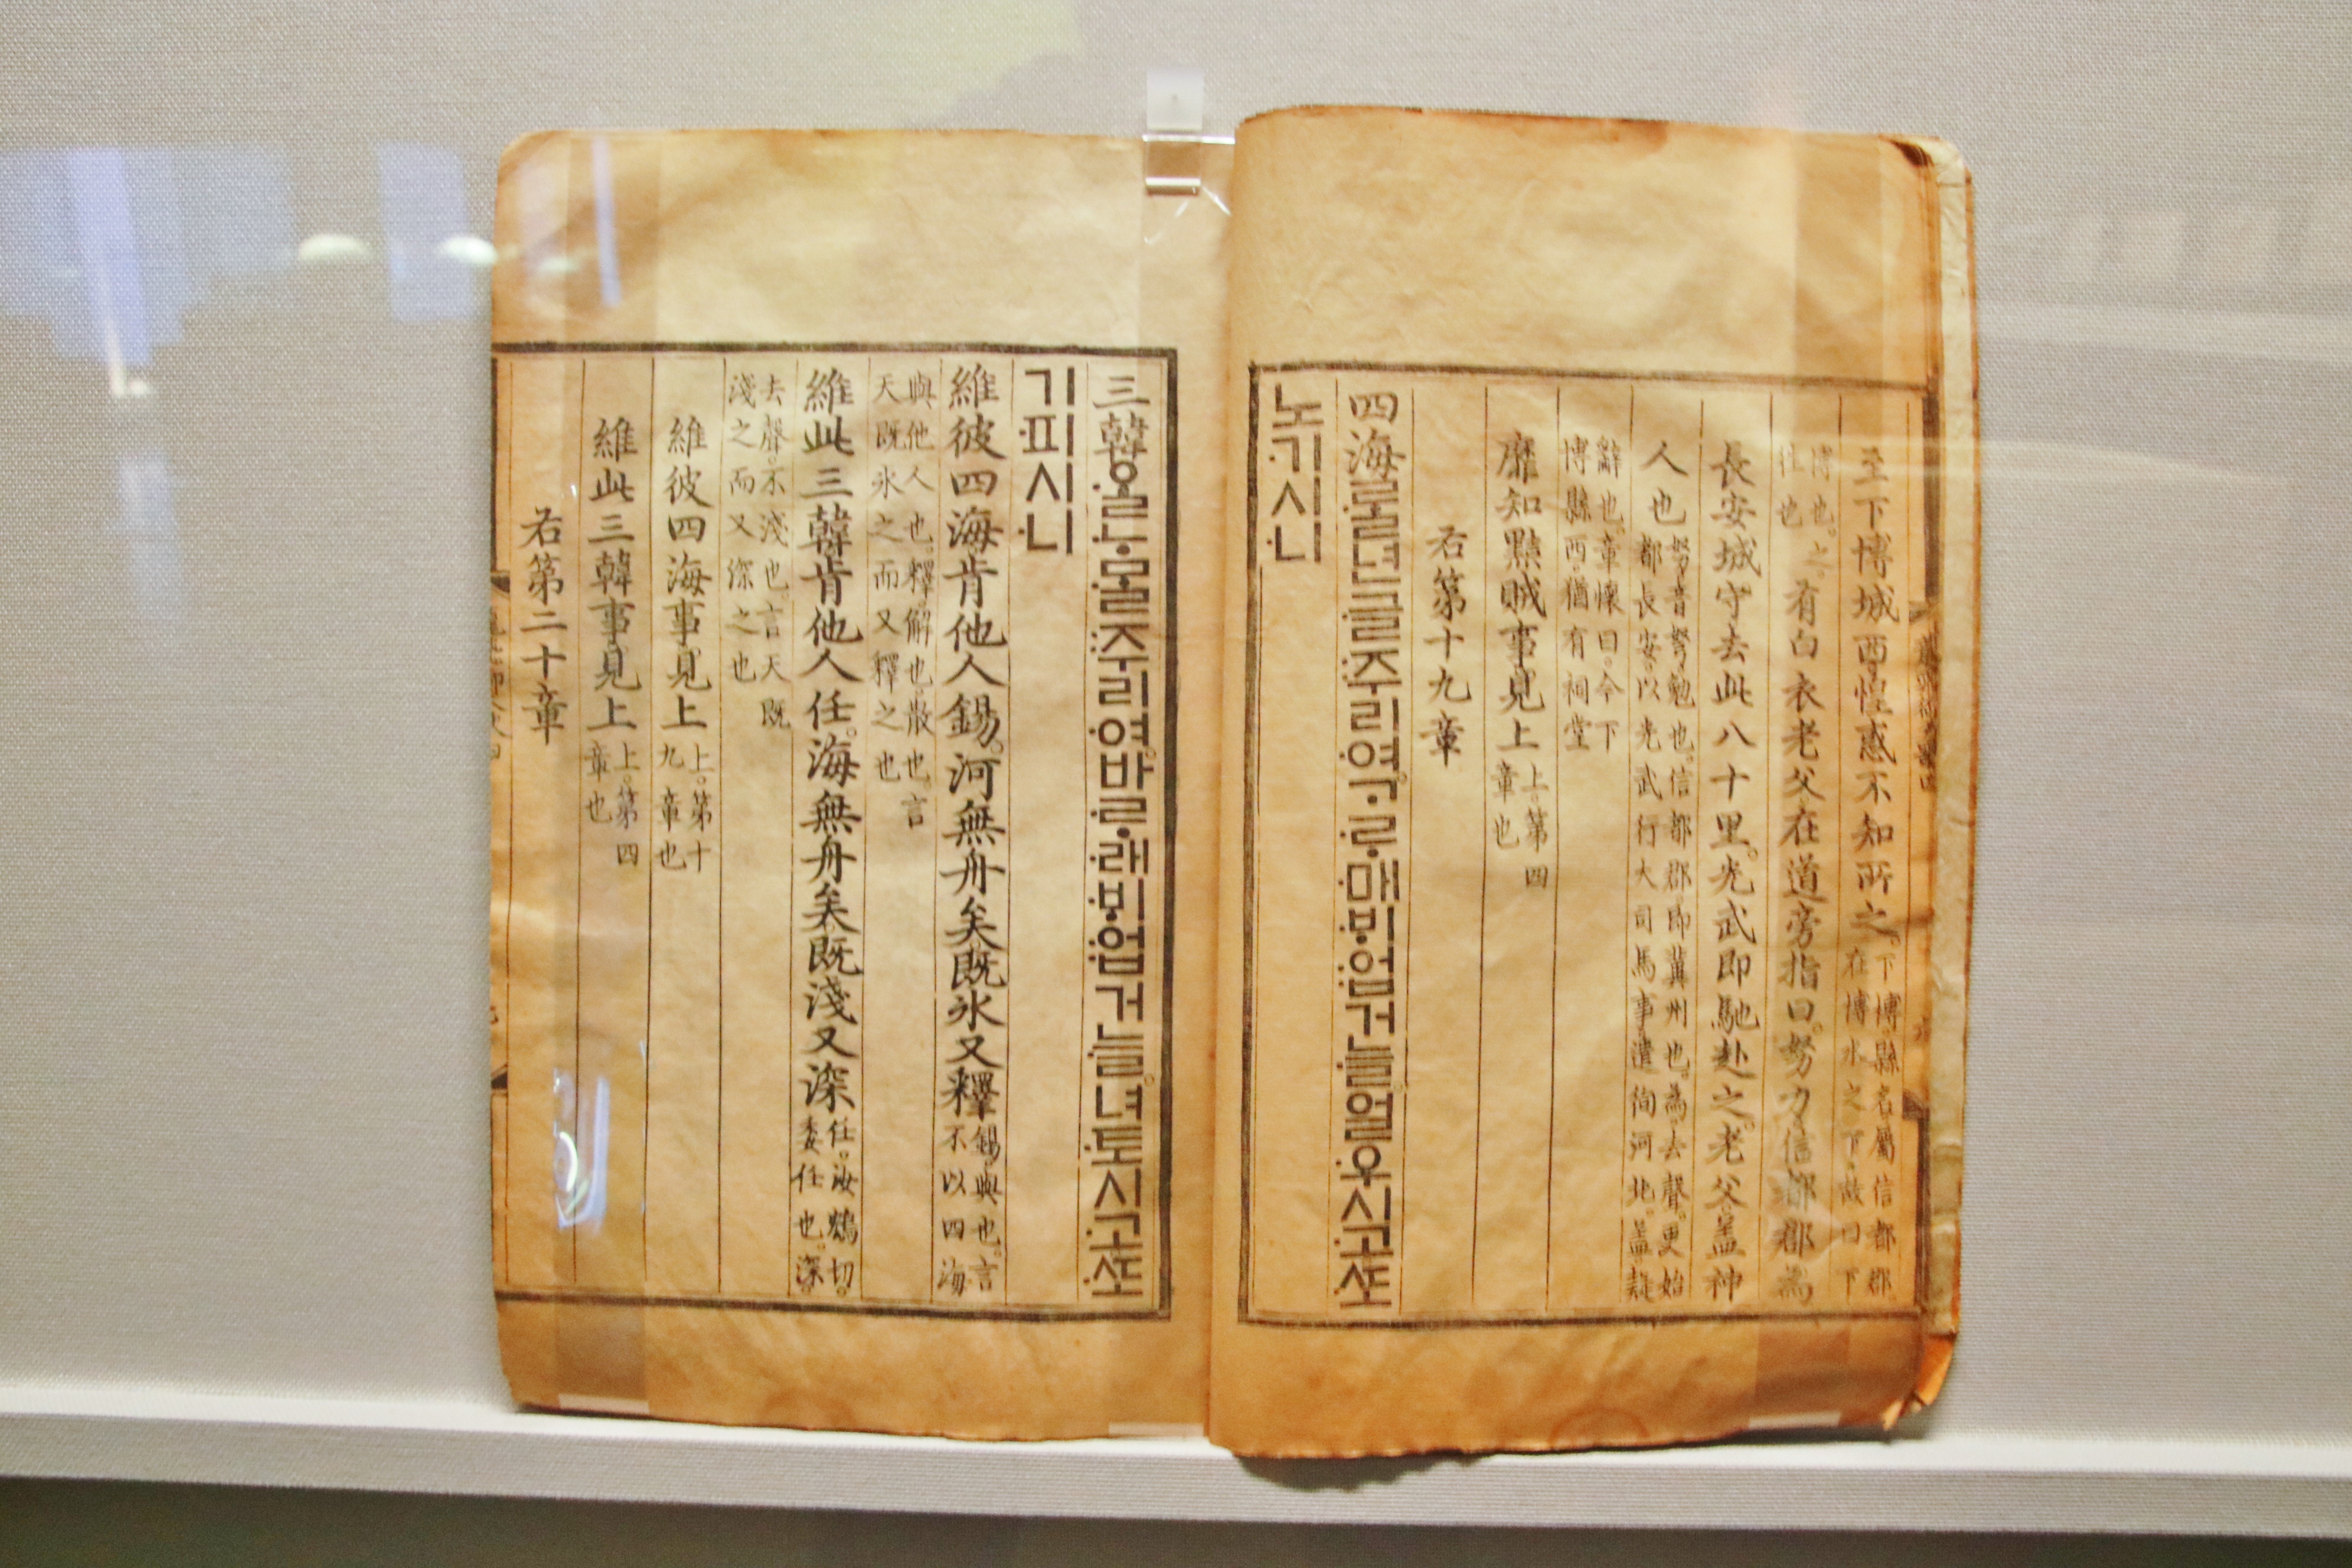 至下博城西惶惑不知所之。下博。縣名屬信都郡
在博水之下。故曰下
博也。之。
往也
有白衣老父在道旁指曰。努力信都郡為
長安城守去此八十里。光武即馳赴之。老父盖神
人也
努音弩。勉也。信都郡。即冀州也。為。去聲。更始
都長安。以光武行大司馬事。遣徇河北。盖。疑
辭也。章懷曰。今下
博縣西。猶有祠堂
靡知黠賊事見上
上。第四
章也
右第十九章
四海ᄅᆞᆯ년글주리여。ᄀᆞᄅᆞ매ᄇᆡ업거늘。얼우시고ᄯᅩ
노기시니
三韓ᄋᆞᆯᄂᆞᄆᆞᆯ주리여。바ᄅᆞ래ᄇᆡ업거늘。녀토시고ᄯᅩ
기피시니
維彼四海肯他人錫。河無舟矣既氷又釋
錫。與也。言
不以四海
與他人也。釋。解也。散也。言
天既氷之而又釋之也
維此三韓肯他人任。海無舟矣既淺又深
任。汝鴆切。
委任也。深。
去聲。不淺也。言天既
淺之而又深之也
維彼四海事見上
上。第十
九章也
維此三韓事見上
上。第四
章也
右第二十章